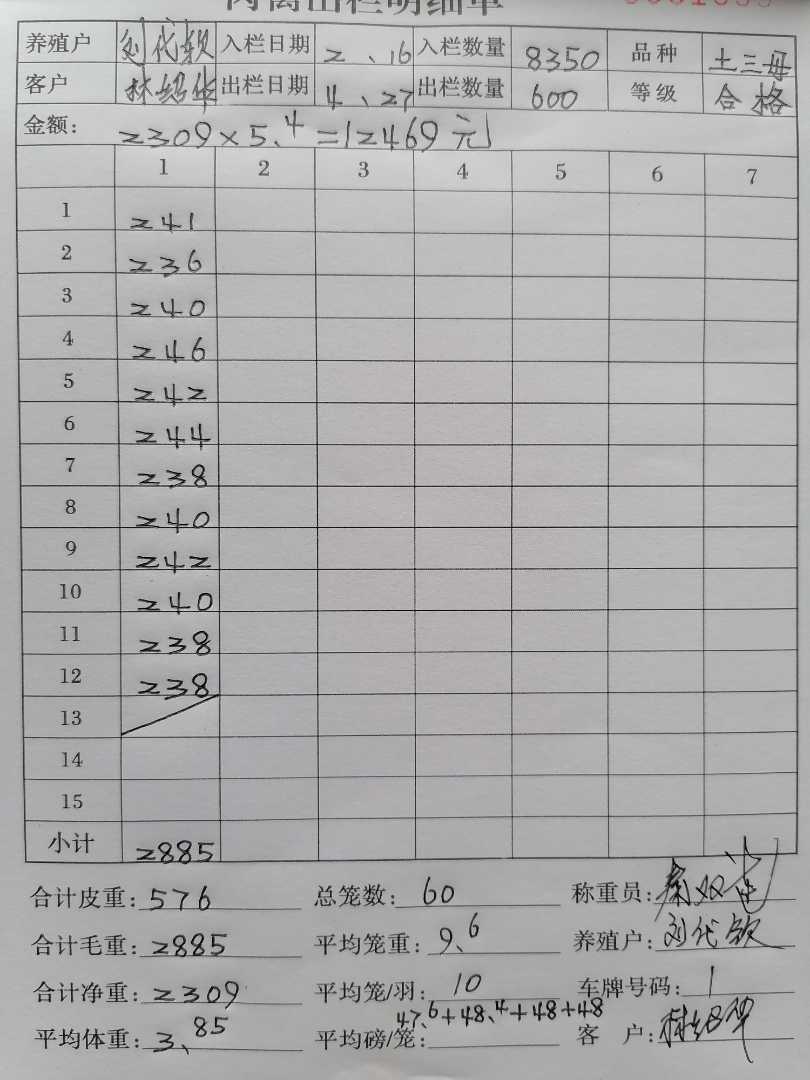 肉禽出栏明细单
养殖户 刘代钦 入栏日期 2、16 入栏数量 8350 品种 土三母
客户 林绍华 出栏日期 4、27 出栏数量 600 等级 合格
金额: 2309×5.4=12469元
1 2 3 4 5 6 7
1 241
2 236
3 240
4 246
5 242
6 244
7 238
8 240
9 242
10 240
11 238
12 238
13
14
15
小计 2885
合计皮重: 576 总笼数: 60 称重员:
合计毛重: 2885 平均笼重: 9.6 养殖户: 刘代钦
合计净重: 2309 平均笼/羽: 10 车牌号码: 1
平均体重: 3.85 平均磅/笼: 47.6+48.4+48+48 客 户: 林绍华